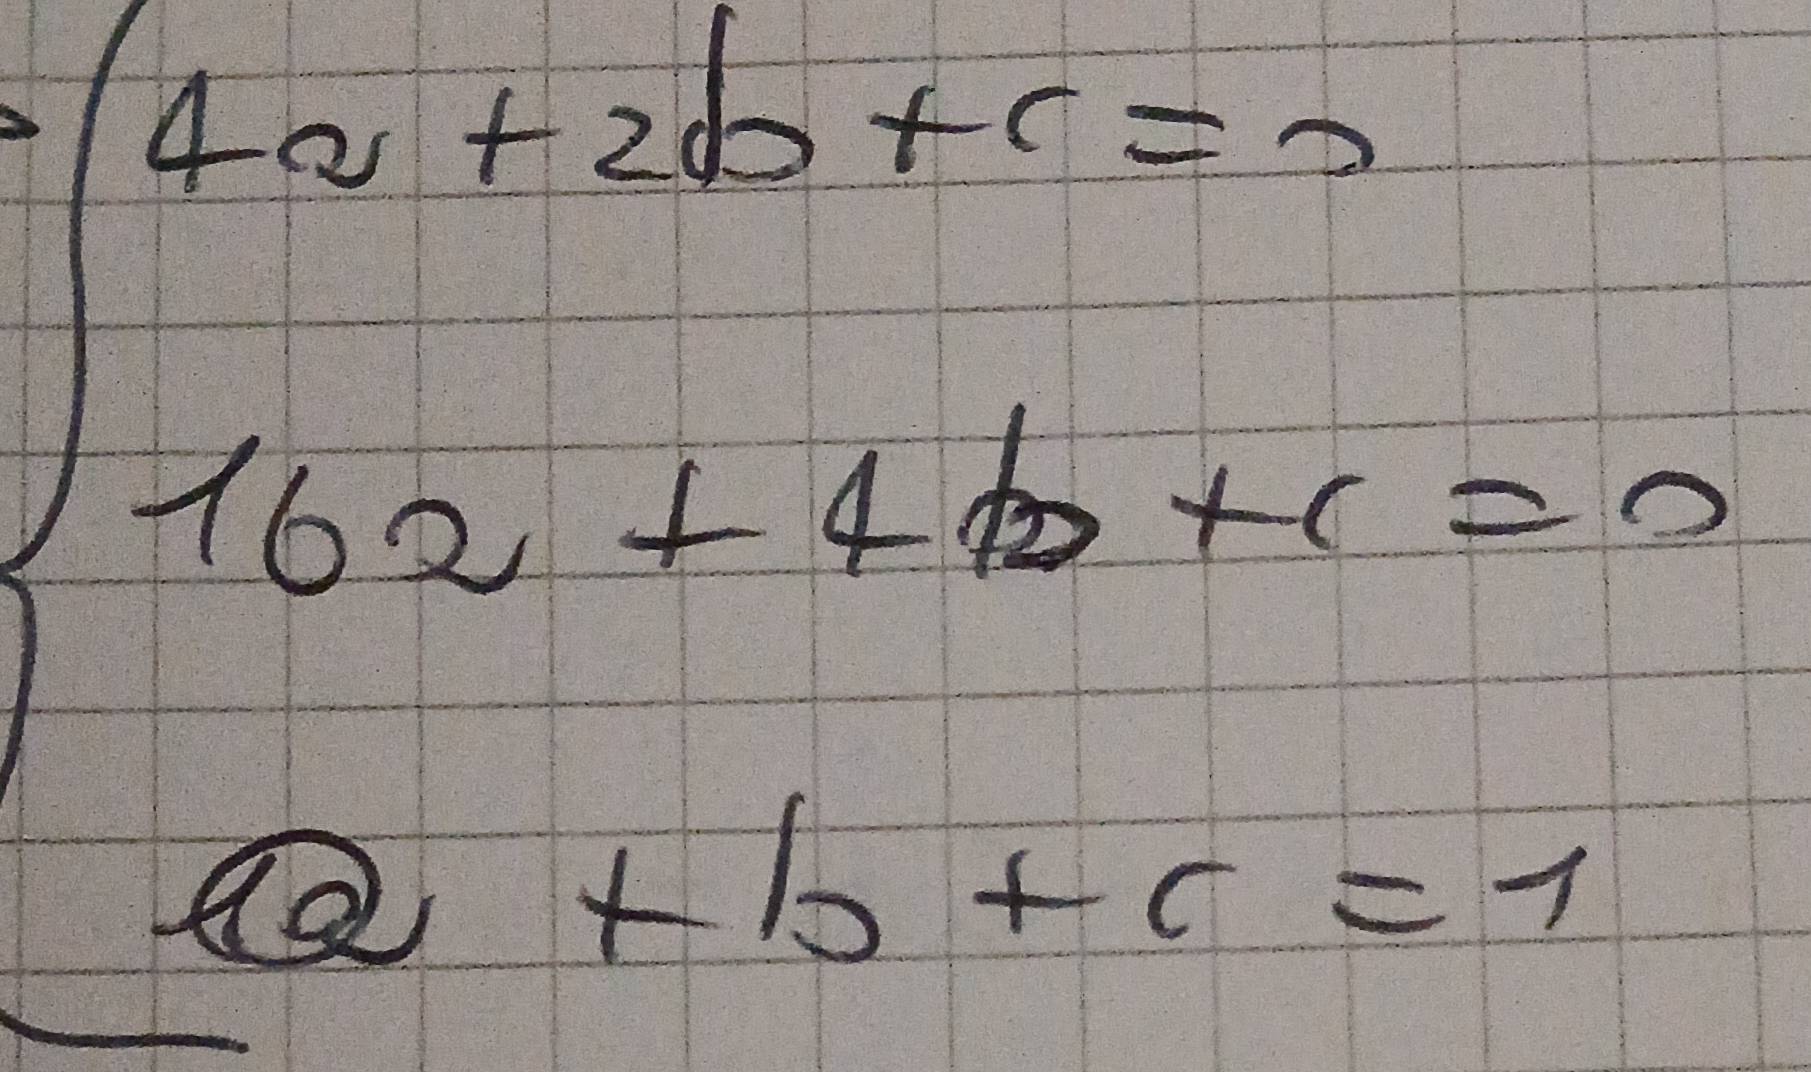 4a + 2b + c = 0
16a + 4b + c = 0
a + b + c = 1